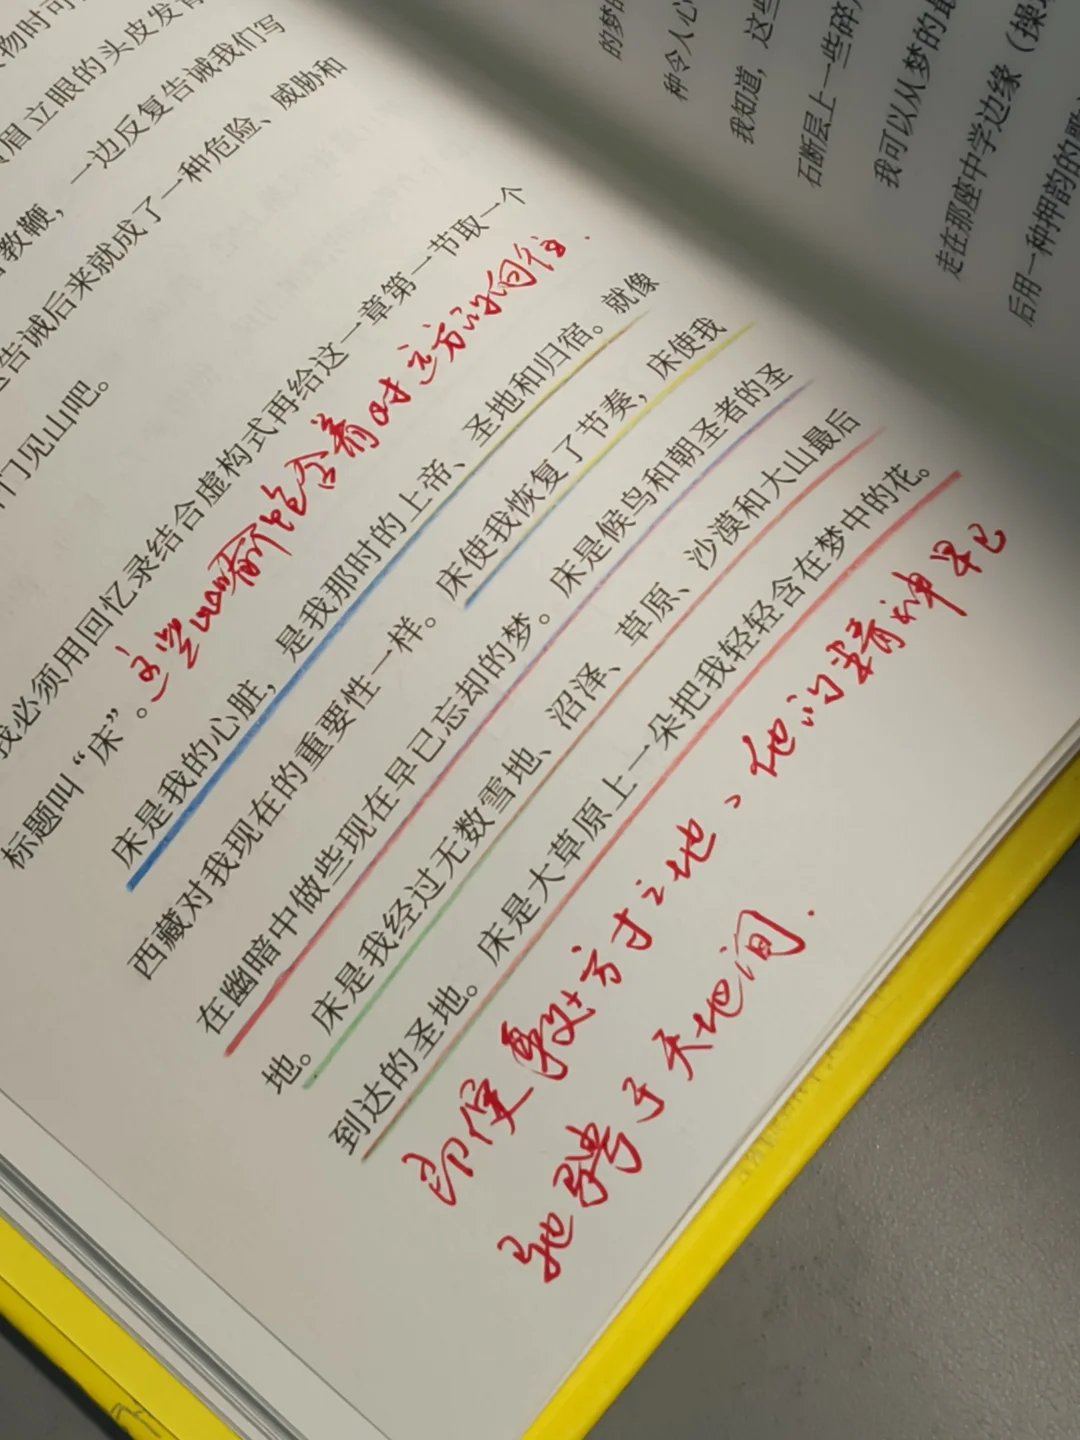 物时可
眉立眼的头皮发
教鞭，一边反复告诫我们写
告诫后来就成了一种危险、威胁和
门见山吧。
我必须用回忆录结合虚构式再给这一章第一节取一个
标题叫“床”。
这些比喻饱含着对远方的向往.
床是我的心脏，是我那时的上帝、圣地和归宿。就像
西藏对我现在的重要性一样。床使我恢复了节奏，床使我
在幽暗中做些现在早已忘却的梦。床是候鸟和朝圣者的圣
地。床是我经过无数雪地、沼泽、草原、沙漠和大山最后
到达的圣地。床是大草原上一朵把我轻轻含在梦中的花。
即便身处方寸之地、他的精神早已
驰骋于天地间.
的梦
种令人心
我知道，这些
石断层上一些碎
我可以从梦的最
走在那座中学边缘（操
后用一种押韵的